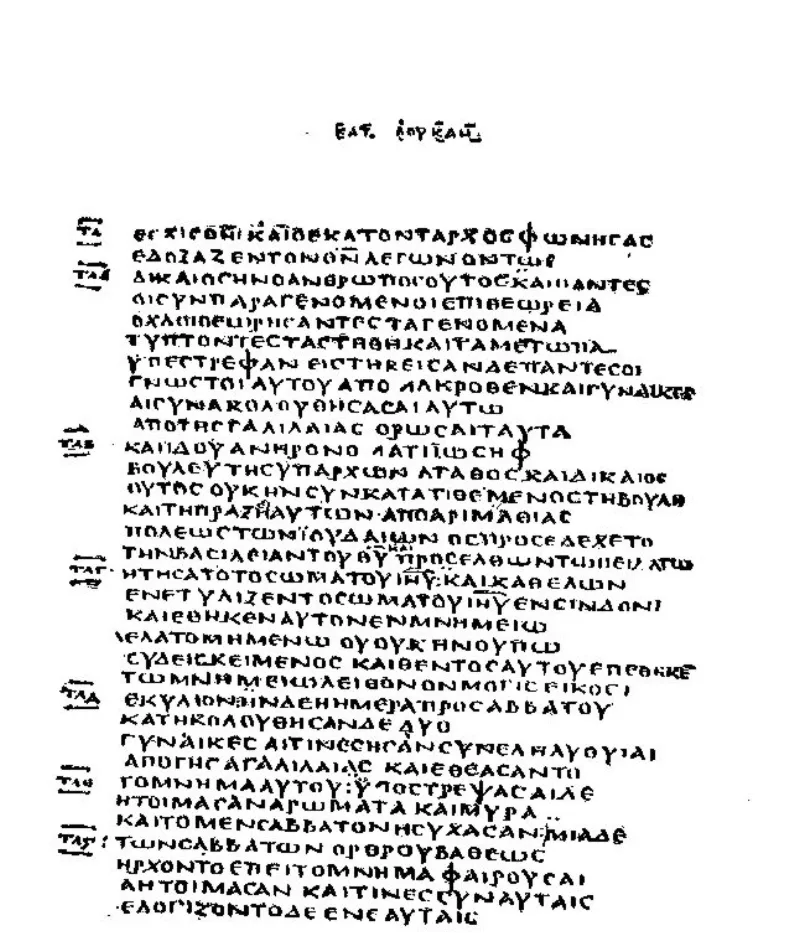 ΚΑΙ Ο ΕΚΑΤΟΝΤΑΡΧΟΣ ΦΩΝΗСΑС
ΕΔΟΞΑΖΕΝ ΤΟΝ Θ̅Ν̅ ΛΕΓΩΝ ΟΝΤΩС
ΔΙΚΑΙΟС ΗΝ Ο ΑΝΘΡΩΠΟС ΟΥΤΟС ΚΑΙ ΠΑΝΤΕС
ΟΙ СΥΝΠΑΡΑΓΕΝΟΜΕΝΟΙ ΕΠΙ ΘΕΩΡΕΙΑ
ΟΧΛΟΙ ΘΕΩΡΗСΑΝΤΕС ΤΑ ΓΕΝΟΜΕΝΑ
ΤΥΠΤΟΝΤΕС ΤΑ СΤΗΘΗ ΚΑΙ ΤΑ ΜΕΤΩΠΑ
ΥΠΕСΤΡΕΦΑΝ ΕΙСΤΗΚΕΙСΑΝ ΔΕ ΠΑΝΤΕС ΟΙ
ΓΝΩСΤΟΙ ΑΥΤΟΥ ΑΠΟ ΜΑΚΡΟΘΕΝ ΚΑΙ ΓΥΝΑΙΚΕС
ΑΙ СΥΝΑΚΟΛΟΥΘΗСΑСΑΙ ΑΥΤΩ
ΑΠΟ ΤΗС ΓΑΛΙΛΑΙΑС ΟΡΩСΑΙ ΤΑΥΤΑ
ΚΑΙ ΙΔΟΥ ΑΝΗΡ ΟΝΟΜΑΤΙ ΙΩСΗΦ
ΒΟΥΛΕΥΤΗС ΥΠΑΡΧΩΝ ΑΓΑΘΟС ΚΑΙ ΔΙΚΑΙΟС
ΟΥΤΟС ΟΥΚ ΗΝ СΥΝΚΑΤΑΤΙΘΕΜΕΝΟС ΤΗ ΒΟΥΛΗ
ΚΑΙ ΤΗ ΠΡΑΞΕΙ ΑΥΤΩΝ ΑΠΟ ΑΡΙΜΑΘΙΑС
ΠΟΛΕΩС ΤΩΝ ΙΟΥΔΑΙΩΝ ΟС ΠΡΟСΕΔΕΧΕΤΟ
ΤΗΝ ΒΑСΙΛΕΙΑΝ ΤΟΥ Θ̅Υ̅ ΠΡΟСΕΛΘΩΝ ΤΩ ΠΕΙΛΑΤΩ
ΗΤΗСΑΤΟ ΤΟ СΩΜΑ ΤΟΥ Ι̅Η̅Υ̅ ΚΑΙ ΚΑΘΕΛΩΝ
ΕΝΕΤΥΛΙΞΕΝ ΤΟ СΩΜΑ ΤΟΥ Ι̅Η̅Υ̅ ΕΝ СΙΝΔΟΝΙ
ΚΑΙ ΕΘΗΚΕΝ ΑΥΤΟΝ ΕΝ ΜΝΗΜΕΙΩ
ΛΕΛΑΤΟΜΗΜΕΝΩ ΟΥ ΟΥΚ ΗΝ ΟΥΠΩ
ΟΥΔΕΙС ΚΕΙΜΕΝΟС ΚΑΙ ΘΕΝΤΟС ΑΥΤΟΥ ΕΠΕΘΗΚΕ
ΤΩ ΜΝΗΜΕΙΩ ΛΕΙΘΟΝ ΟΝ ΜΟΓΙС ΕΙΚΟСΙ
ΕΚΥΛΙΟΝ ΗΝ ΔΕ Η ΗΜΕΡΑ ΠΡΟ СΑΒΒΑΤΟΥ
ΚΑΤΗΚΟΛΟΥΘΗСΑΝ ΔΕ ΔΥΟ
ΓΥΝΑΙΚΕС ΑΙΤΙΝΕС ΗСΑΝ СΥΝΕΛΗΛΥΘΥΙΑΙ
ΑΠΟ ΤΗС ΓΑΛΙΛΑΙΑС ΚΑΙ ΕΘΕΑСΑΝΤΟ
ΤΟ ΜΝΗΜΑ ΑΥΤΟΥ : ΥΠΟСΤΡΕΨΑСΑΙ ΔΕ
ΗΤΟΙΜΑСΑΝ ΑΡΩΜΑΤΑ ΚΑΙ ΜΥΡΑ
ΚΑΙ ΤΟ ΜΕΝ СΑΒΒΑΤΟΝ ΗСΥΧΑСΑΝ ΜΙΑ ΔΕ
ΤΩΝ СΑΒΒΑΤΩΝ ΟΡΘΡΟΥ ΒΑΘΕΩС
ΗΡΧΟΝΤΟ ΕΠΙ ΤΟ ΜΝΗΜΑ ΦΕΡΟΥСΑΙ
Α ΗΤΟΙΜΑСΑΝ ΚΑΙ ΤΙΝΕС СΥΝ ΑΥΤΑΙС
ΕΛΟΓΙΖΟΝΤΟ ΔΕ ΕΝ ΕΑΥΤΑΙС